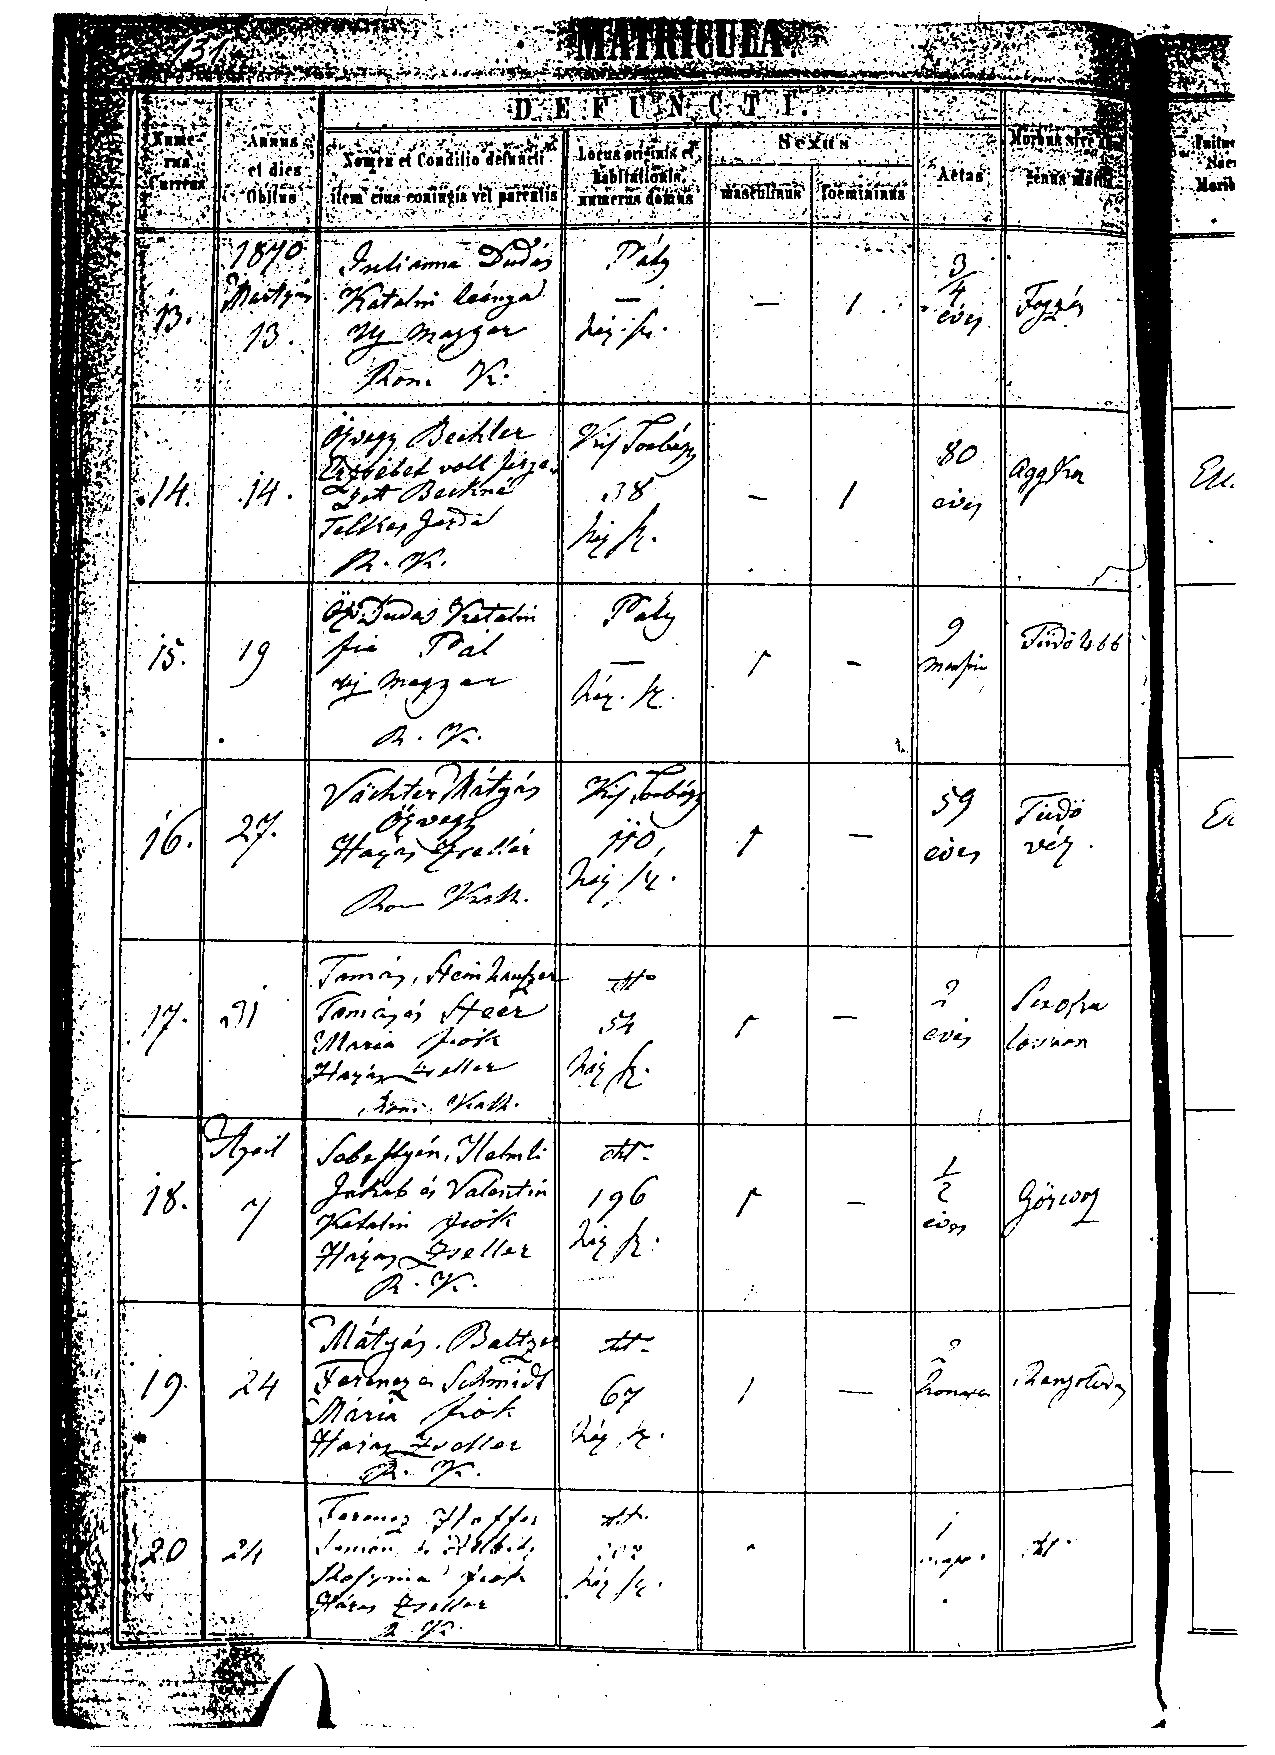 131
MATRICULA
DEFUNCTI.
Numerus Currens
Annus et dies Obitus
Nomen et Conditio defuncti item eius coniugis vel parentis
Locus originis et habitationis, numerus domus
Sexus
masculinus
foemininus
Aetas
Morbus sive
genus mortis
13.
1870
Martyus
13.
Julianna Dudás
Katalin leánya
Uj magyar
Rom. K.
Páty
—
ház. sz.
—
1
3/4
éves
Fogzás
14.
14.
Özvegy Bechler
Erzsébet volt
Telkes gazda
R. K.
Kis Torbágy
38
ház sz.
—
1
80
éves
Aggkor
15.
19
Öz Dudás Katalin
fia Pál
uj magyar
R. K.
Páty
—
ház. sz.
1
—
9
16.
27.
Vächter Mátyás
Özvegy
Házas Zsellér
Rom Kath.
Kis Torbágy
110
ház sz.
1
—
59
éves
Tüdő
vész.
17.
31
Tamás, Steinhauszer
Tamás és Steér
Mária fiók
Házas Zseller
Rom. Kath.
dtto
54
ház sz.
1
—
2
éves
18.
April
7
Sebestyén, Helmli
Jakab és Valentin
Katalin fiók
Házas Zseller
R. K.
dtto
196
ház sz.
1
—
1/2
éves
Görcsök
19.
24
Mátyás. Baltzer
Ferencz és Schmidt
Mária fiók
Házas Zseller
R. K.
dtto
67
ház sz.
1
—
2
hónapos
20
24
Ferencz
fiók
Házas Zseller
R. K.
dtto
ház sz.
1
dtto